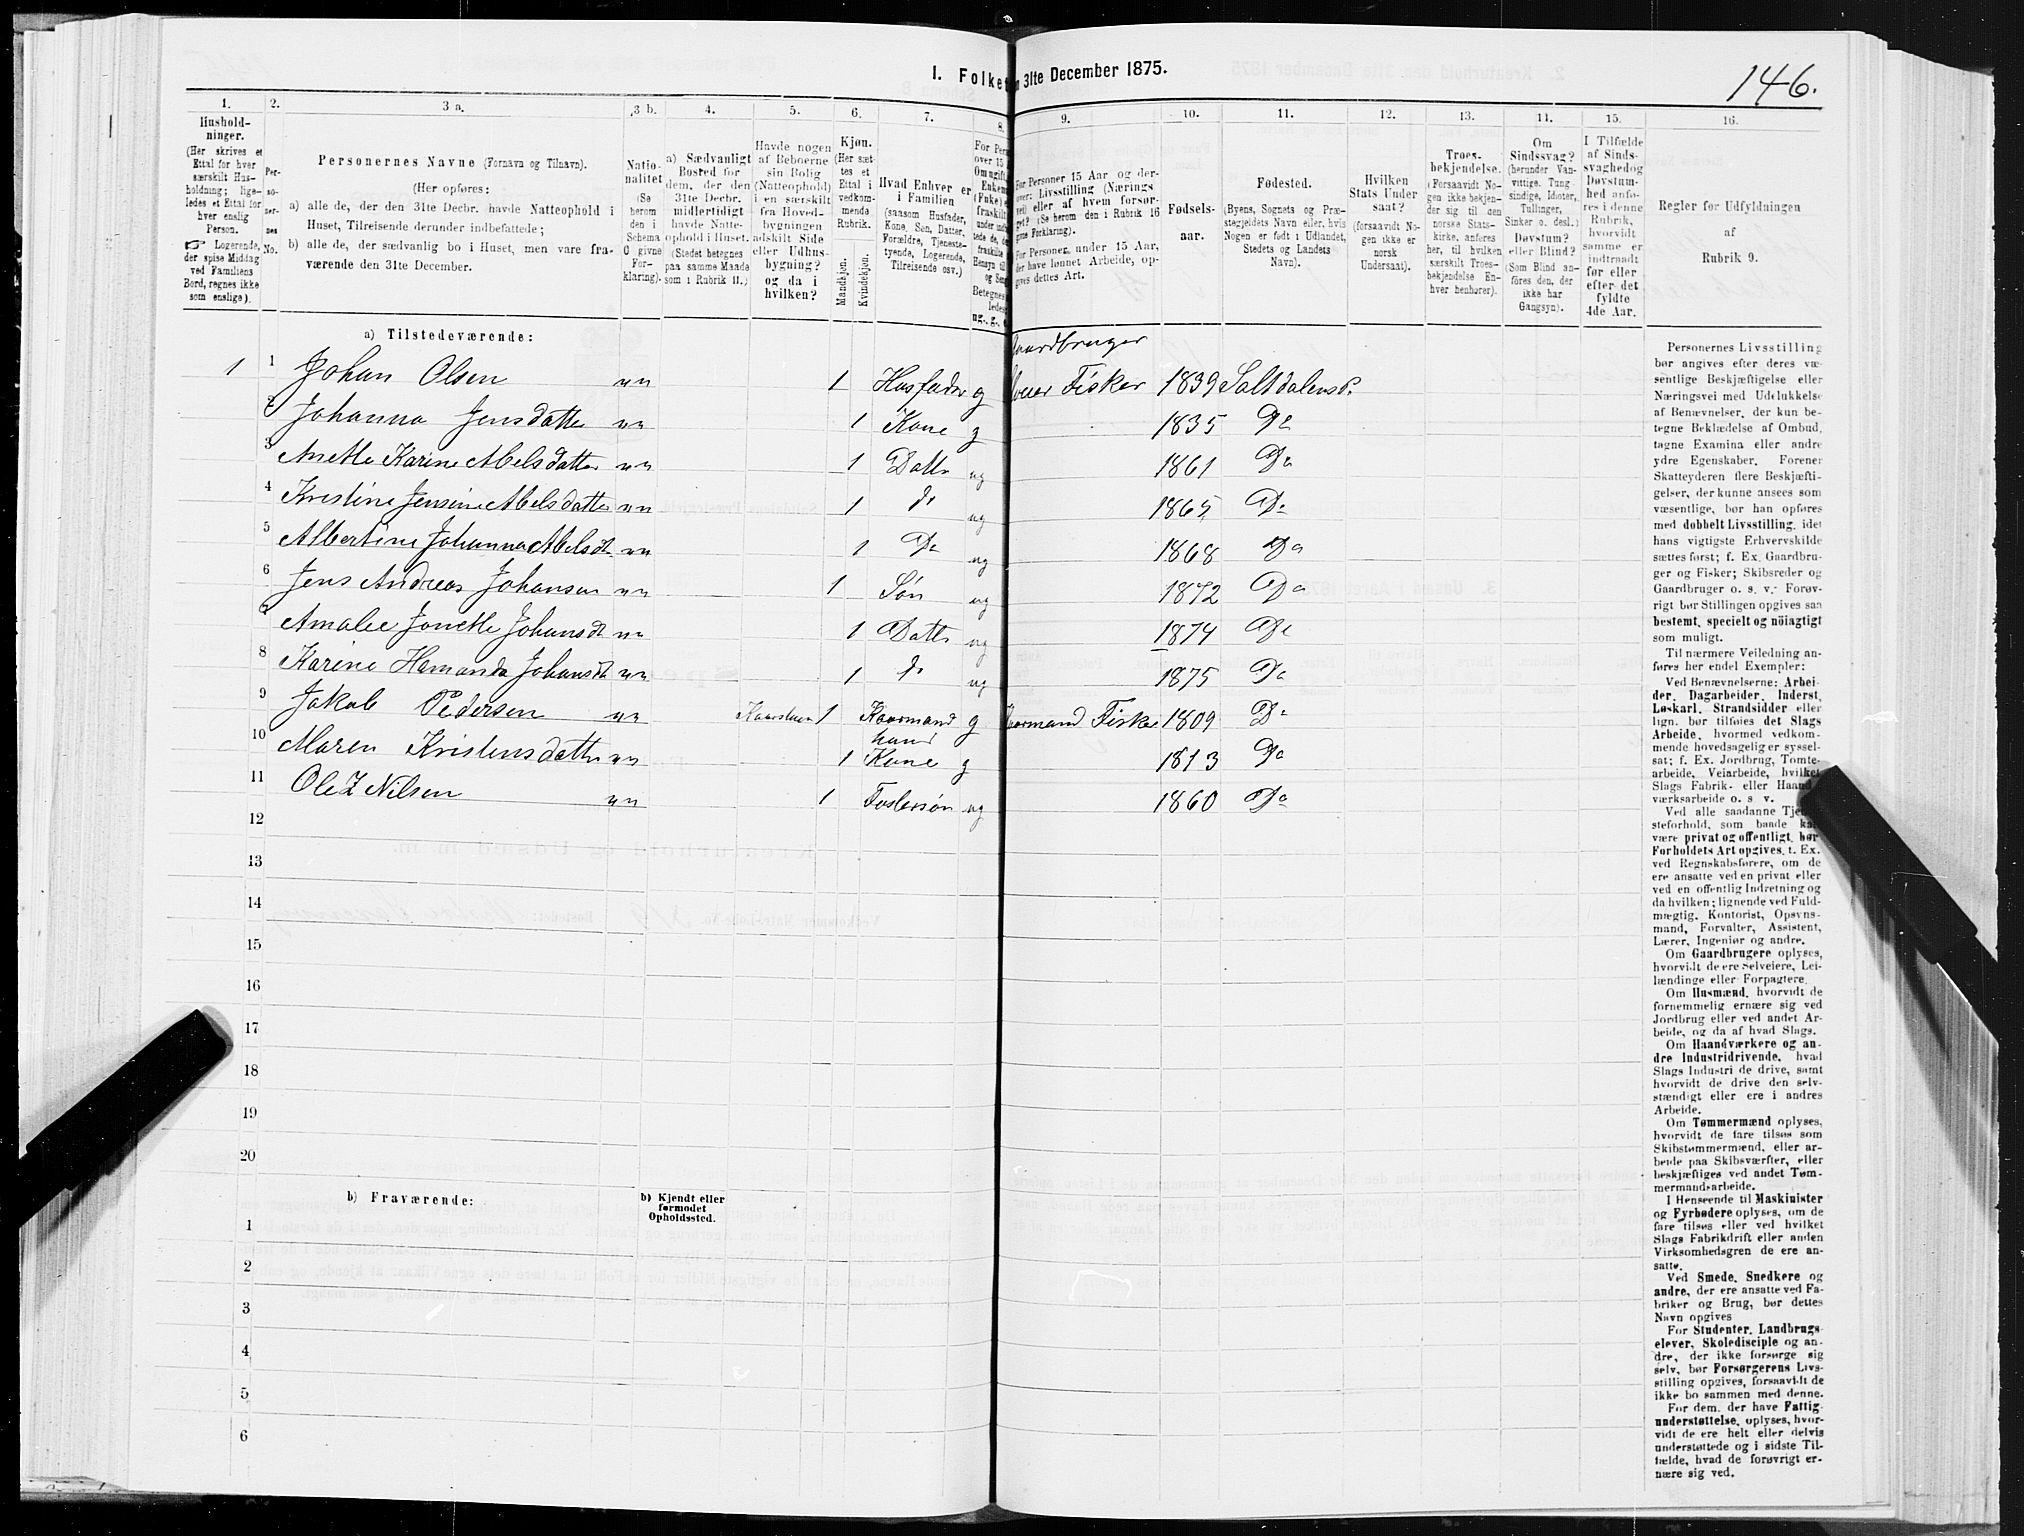 1. Folke n 31te December 1875.
146.
1. 2. 3 a. 3 b. 4. 5. 6. 7. 8. 9. 10. 11. 12. 13. 14. 15. 16.
Hushold-
ninger.
(Her skrives et
Ettal for hver
særskilt Hus-
holdning; lige-
ledes et Ettal for
hver enslig
Person.
☞ Logerende,
der spise Middag
ved Familiens
Bord, regnes ikke
som enslige).
Per-
so-
ner-
nes
No.
Personernes Navne (Fornavn og Tilnavn).
(Her opføres:
a) alle de, der den 31te Decbr. havde Natteophold i
Huset, Tilreisende derunder indbefattede;
b) alle de, der sædvanlig bo i Huset, men vare fra-
værende den 31te December.
Natio-
nalitet
(Se
herom
den i
Schema
O givne
For-
klaring).
a) Sædvanligt
Bosted for
dem, der den
31te Decbr.
midlertidigt
havde Natte-
ophold i Huset.
(Stedet betegnes
paa samme Maade
som i Rubrik 11.)
Havde nogen
af Beboerne
sin Bolig
(Natteophold)
i en særskilt
fra Hoved-
bygningen
adskilt Side
eller Udhus-
bygning?
og da i
hvilken?
Kjøn.
(Her sæt-
tes et
Ettal i
vedkom-
mende
Rubrik.
Mandkjøn.
Kvindekjøn.
Hvad Enhver er
i Familien
(saasom Husfader,
Kone, Søn, Datter,
Forældre, Tjeneste-
tyende, Logerende,
Tilreisende osv.)
For Personer 15 Aar og der-
over: Livsstilling (Nærings
vei) eller af hvem forsør-
get? (Se herom den i Rubrik 16
givne Forklaring).
For Personer under 15 Aar,
der have lønnet Arbeide, op-
gives dettes Art.
Fødsels-
aar.
Fødested.
(Byens, Sognets og Præ-
stegjeldets Navn eller, hvis
Nogen er født i Udlandet,
Stedets og Landets
Navn).
Hvilken
Stats Under
saat?
(forsaavidt No-
gen ikke er
norsk
Undersaat).
Troes-
bekjendelse.
(Forsaavidt No-
gen ikke bekjen-
der sig til den
norske Stats-
kirke, anføres
her, til hvilken
særskilt Troes-
bekjendelse En-
hver henhører).
Om
Sindssvag?
(herunder Van-
vittige, Tung
sindige, Idioter,
Tullinger,
Sinker o. desl.)
Døvstum?
eller Blind?
(Som Blind an-
føres den, der
ikke har
Gangsyn).
I Tilfælde
af Sinds-
svaghed og
Døvstum-
hed anfø-
res i denne
Rubrik,
hvorvidt
samme er
indtraadt
før eller
efter det
fyldte
4de Aar.
Regler før Udfyldningen
af
Rubrik 9.
a) Tilstedeværende:
1 1 Johan Olsen nn 1 Husfader g Fisker 1839 Saltdalens P.
2 Johanna Jensdatter nn 1 Kone g 1835 Do
3 Anette Karine Abelsdatter nn 1 Datter ug 1861 Do
4 Kristine Jensine Abelsdatter nn 1 do ug 1865 Do
5 Albertine Johanna Abelsdt nn 1 Do ug 1868 Do
6 Jens Andreas Johansen nn 1 Søn ug 1872 Do
7 Amalie Jonette Johansdt nn 1 Datter ug 1874 Do
8 Karine Hemanda Johansdt nn 1 do ug 1875 Do
9 Jakob Pedersen nn Kaarstuen 1 Kaarmand g Kaarmand Fisker 1809 Do
10 Maren Kristensdatter nn 1 hans Kone g 1813 Do
11 Ole Z Nilsen nn 1 Fostersøn ug 1860 Do
12
13
14
15
16
17
18
19
20
b) Fraværende:
b) Kjendt eller
formodet
Opholdssted.
1
2
3
4
5
6
Personernes Livsstilling
bør angives efter deres væ-
sentlige Beskjæftigelse eller
Næringsvei med Udelukkelse
af Benævnelser, der kun be-
tegne Beklædelse af Ombud,
tagne Examina eller andre
ydre Egenskaber. Forener
Skatteyderen flere Beskjæfti-
gelser, der kunne ansees som
væsentlige, bør han opføres
med dobbelt Livsstilling, idet
hans vigtigste Erhvervskilde
sættes først; f. Ex. Gaardbru-
ger og Fisker; Skibsreder og
Gaardbruger o. s. v. Forøv-
rigt bør Stillingen opgives saa
bestemt, specielt og nøiagtigt
som muligt.
Til nærmere Veiledning an-
føres her endel Exempler:
Ved Benævnelserne: Arbei-
der, Dagarbeider, Inderst,
Løskarl, Strandsidder eller
lign. bør tilføies det Slags
Arbeide, hvormed vedkom-
mende hovedsagelig er syssel-
sat; f. Ex. Jordbrug, Tomte-
arbeide, Veiarbeide, hvilket
Slags Fabrik- eller Haand-
værksarbeide o. s v.
Ved alle saadanne Tje
steforhold, som baade
være privat og offentligt, bør
Forholdets Art opgives, t. Ex.
ved Regnskabsførere, om de
ere ansatte ved en privat eller
ved en offentlig Indretning og
da hvilken; lignende ved Fuld-
mægtig, Kontorist, Opsyns-
mand, Forvalter, Assistent,
Lærer, Ingeniør og andre.
Om Gaardbrugere oplyses,
hvorvidt de ere Selveiere, Lei-
lændinge eller Forpagtere.
Om Husmænd, hvorvidt de
fornemmelig ernære sig ved
Jordbrug eller ved andet Ar-
beide, og da af hvad Slags.
Om Haandværkere og an-
dre Industridrivende, hvad
Slags Industri de drive, samt
hvorvidt de drive den selv-
stændigt eller ere i andres
Arbeide.
Om Tømmermænd oplyses,
hvorvidt de fare tilsøs som
Skibstømmermænd, eller ar-
beide paa Skibsværfter, eller
beskjæftiges ved andet Tøm-
mermandsarbeide.
I Henseende til Maskinister
og Fyrbødere oplyses, om de
fare tilsøs eller ved hvilket
Slags Fabrikdrift eller anden
Virksomhedsgren de ere an-
satte.
Ved Smede, Snedkere og
andre, der ere ansatte ved Fa-
briker og Brug, bør dettes
Navn opgives
For Studenter, Landbrugs-
elever, Skoledisciple og an-
dre, der ikke forsørge sig
selv, bør Forsørgerens Livs-
stilling opgives, forsaavidt de
ikke bo sammen med denne.
For dem, der have Fattig-
understøttelse, oplyses, hvor-
vidt de ere helt eller delvis
understøttede og i sidste Til-
fælde, hvad de forøvrigt er-
nære sig ved.